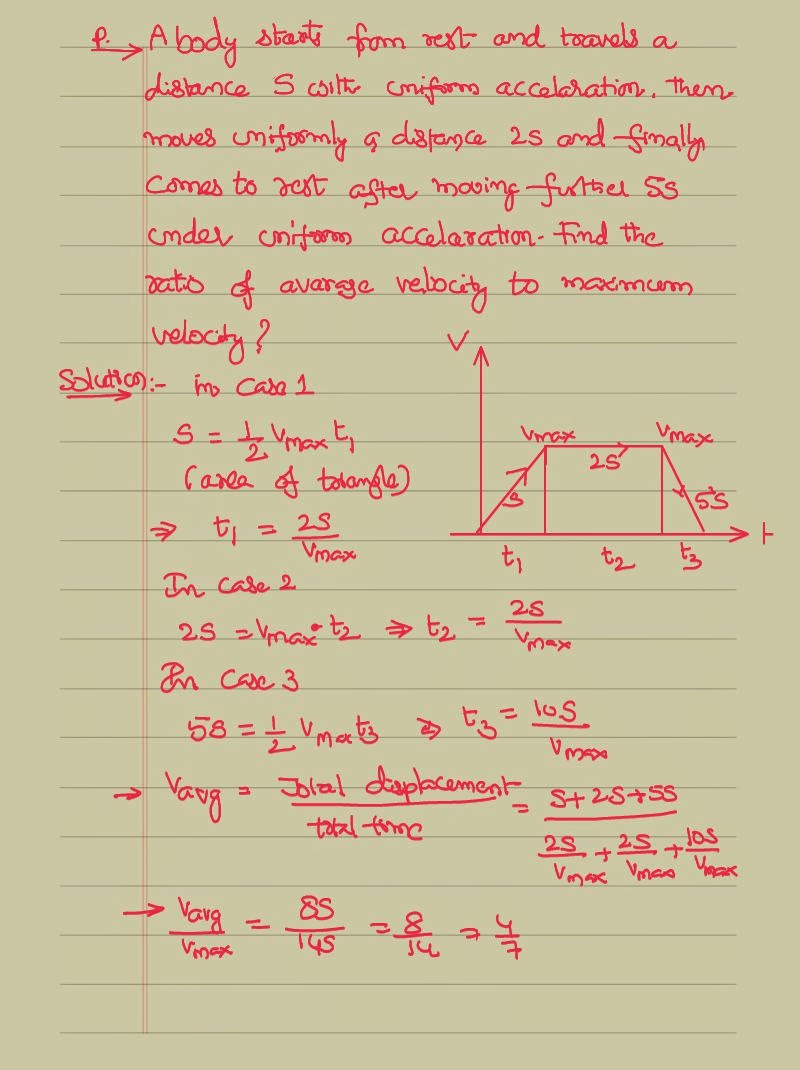 P. → A body starts from rest and travels a
distance S with uniform accelaration. Then
moves uniformly a distance 2S and finally
Comes to rest after moving further 5S
under uniform accelaration. Find the
ratio of avarage velocity to maximum
velocity?
Solution:- in Case 1
S = 1/2 Vmax t1
(area of triangle)
⇒ t1 = 2S/Vmax
V
Vmax Vmax
S 2S 5S
t
t1 t2 t3
In Case 2
2S = Vmax · t2 ⇒ t2 = 2S/Vmax
In Case 3
5S = 1/2 Vmax t3 ⇒ t3 = 10S/Vmax
→ Vavg = Total displacement/total time = (S+2S+5S)/(2S/Vmax + 2S/Vmax + 10S/Vmax)
→ Vavg/Vmax = 8S/14S = 8/14 ⇒ 4/7